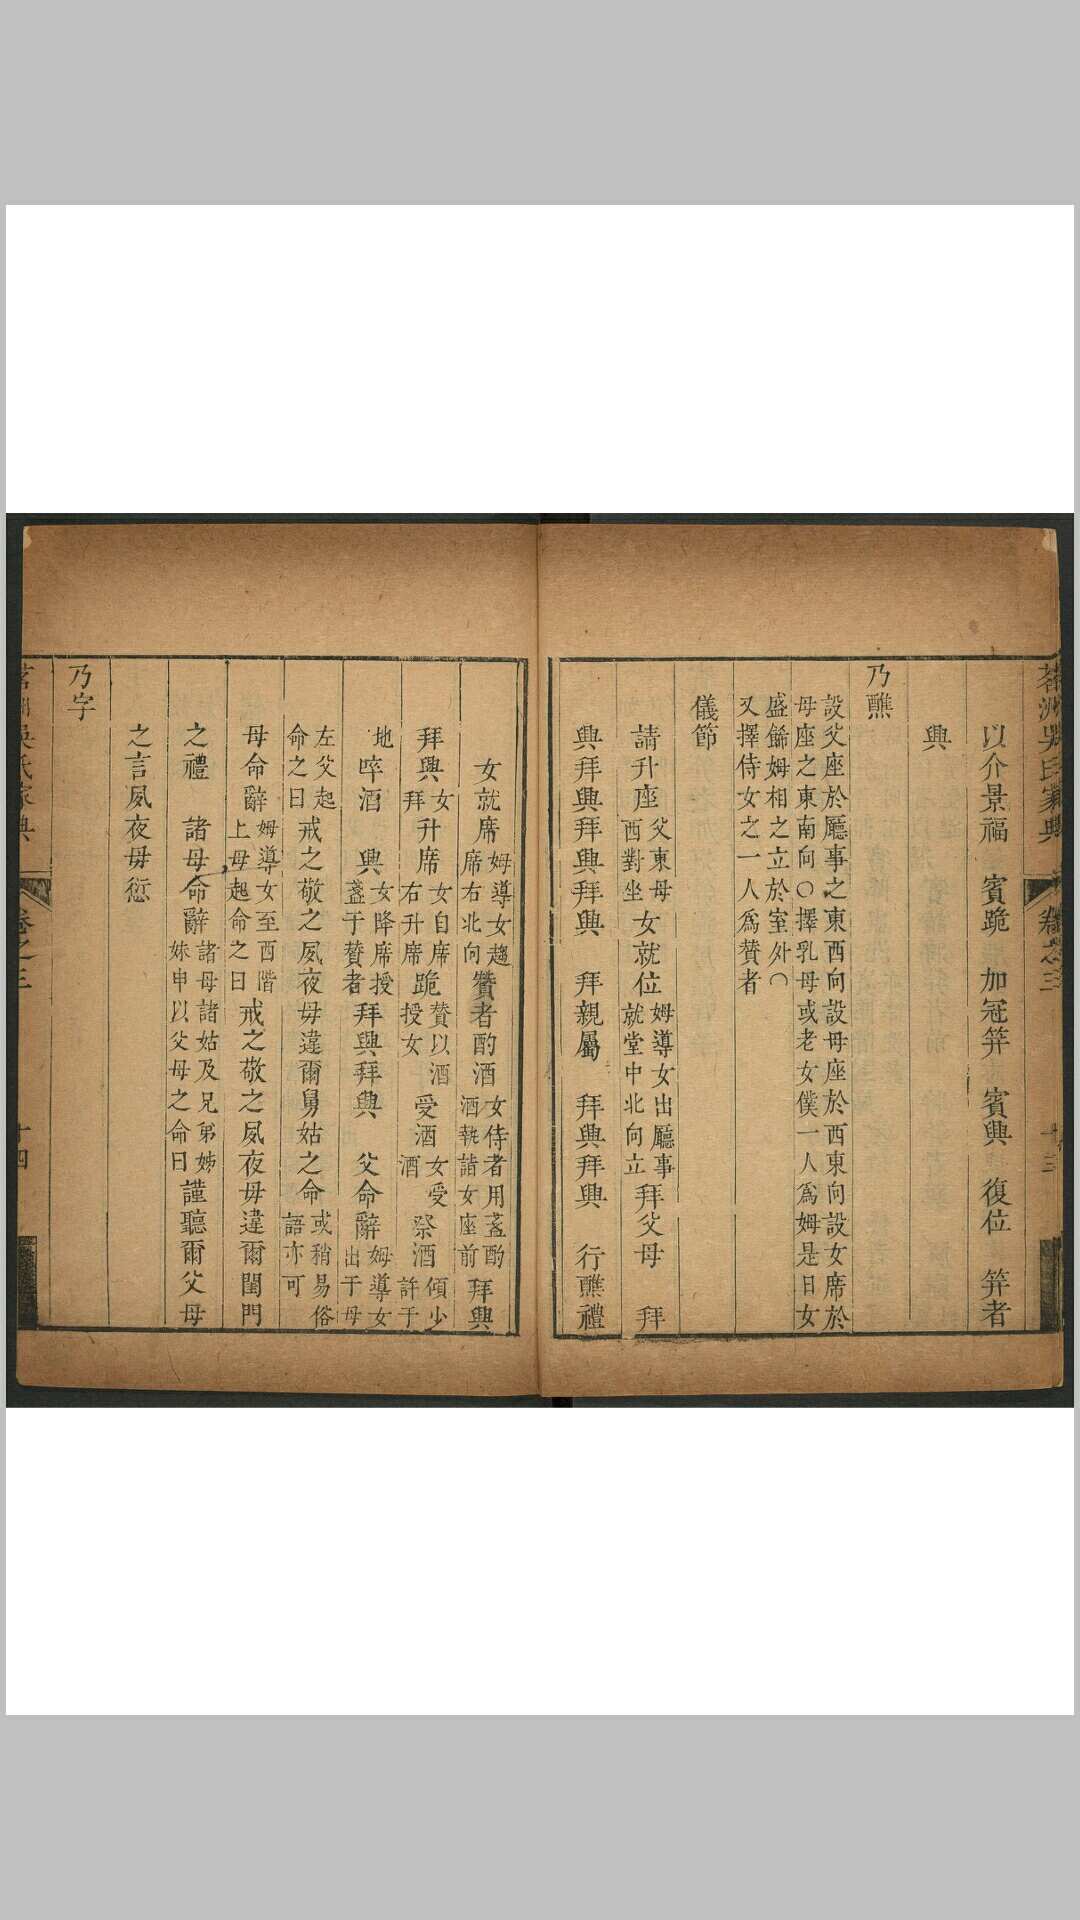 茗洲吳氏家典 卷之三 十三
以介景福 賓跪 加冠笄 賓興 復位 笄者
興
乃醮
設父座於廳事之東西向設母座於西東向設女席於
母座之東南向○擇乳母或老女僕一人爲姆是日女
盛餙姆相之立於室外○
又擇侍女之一人爲贊者
儀節
請升座 父東母
西對坐 女就位 姆導女出廳事
就堂中北向立 拜父母 拜
興拜興拜興拜興 拜親屬 拜興拜興 行醮禮
女就席 姆導女趨
席右北向 贊者酌酒 女侍者用盞酌
酒執詣女座前 拜興
拜興 女
拜 升席 女自席
右升席 跪 贊以酒
授女 受酒 女受
酒 祭酒 傾少
許于
地 啐酒 興 女降席授
盞于贊者 拜興拜興 父命辭 姆導女
出于母
左父起
命之曰 戒之敬之夙夜毋違爾舅姑之命 或稍易俗
語亦可
母命辭 姆導女至西階
上母起命之曰 戒之敬之夙夜毋違爾閨門
之禮 諸母命辭 諸母諸姑及兄弟姊
妹申以父母之命曰 謹聽爾父母
之言夙夜毋愆
乃字
茗洲吳氏家典 卷之三 十四